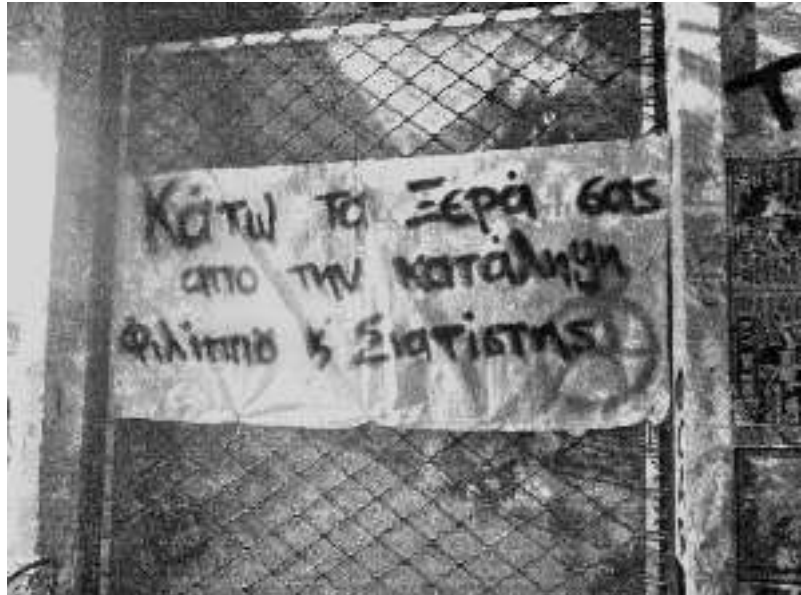 Κάτω τα Ξερά σας
απο την κατάληψη
Φιλίππου κ Σιατίστης